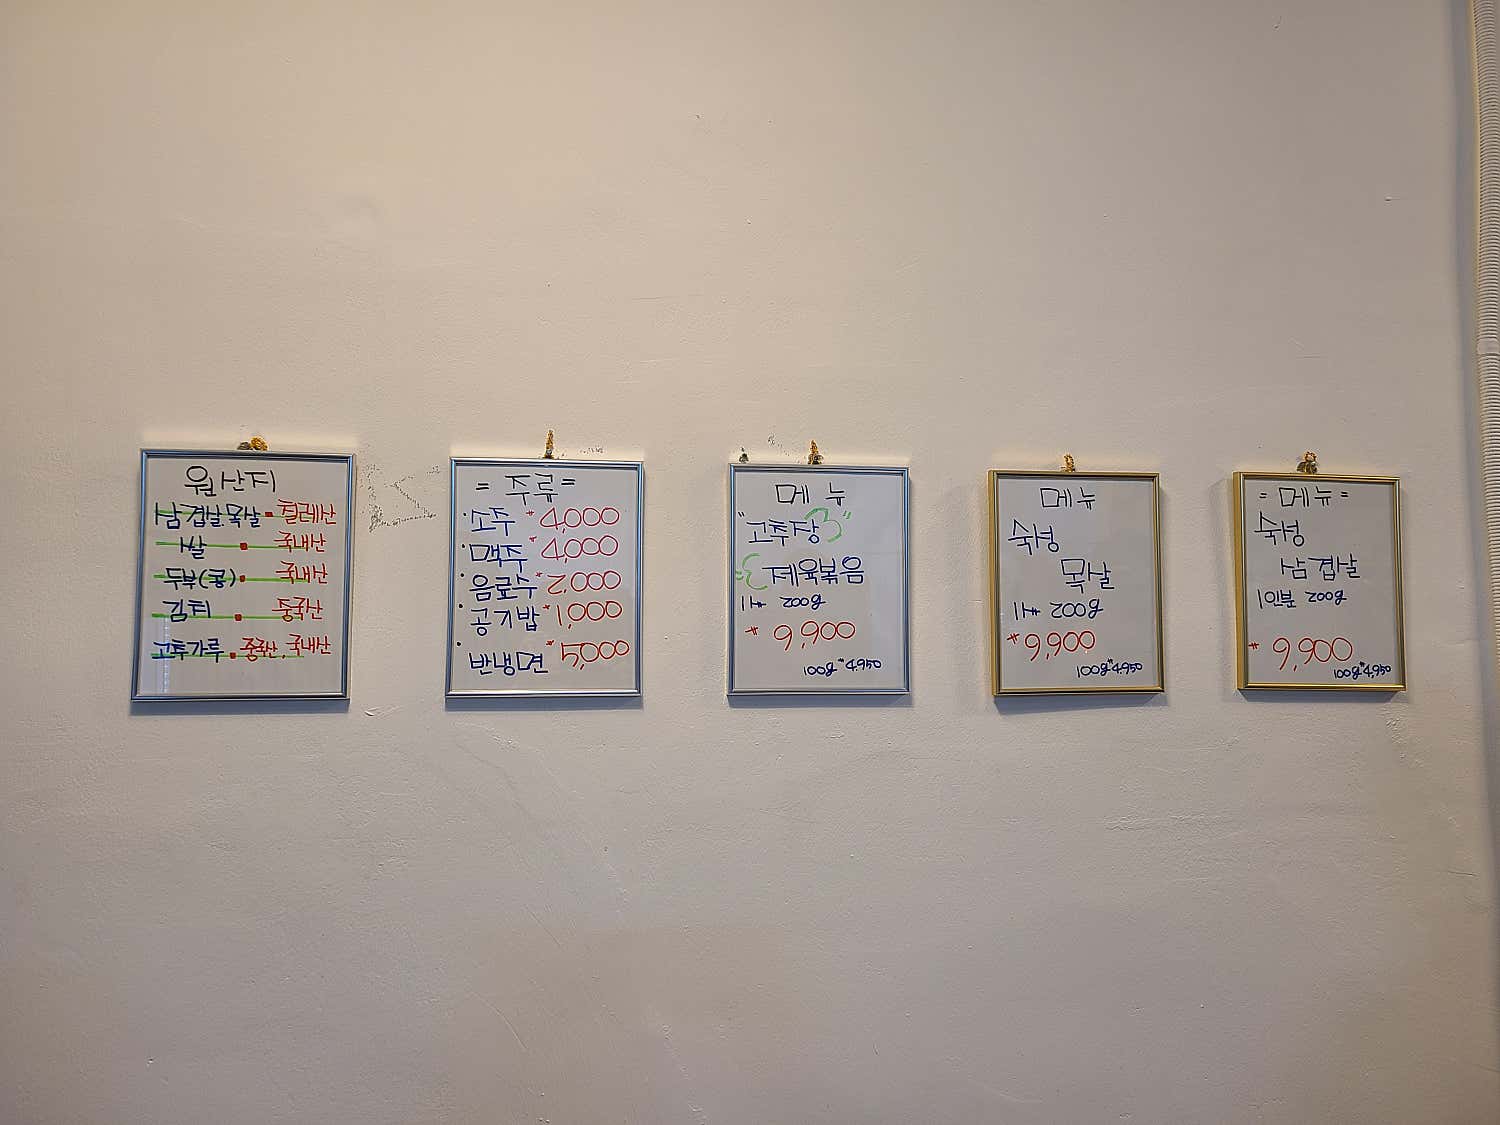 원산지
삼겹살.목살. 칠레산
쌀. 국내산
두부(콩). 국내산
김치. 중국산
고추가루. 중국산, 국내산
= 주류 =
· 소주 * 4,000
· 맥주 * 4,000
· 음료수 * 2,000
· 공기밥 * 1,000
· 반냉면 * 5,000
메뉴
"고추장"
제육볶음
200g
* 9,900
100g * 4,950
메뉴
숙성
목살
200g
* 9,900
100g * 4,950
= 메뉴 =
숙성
삼겹살
1인분 200g
* 9,900
100g * 4,950